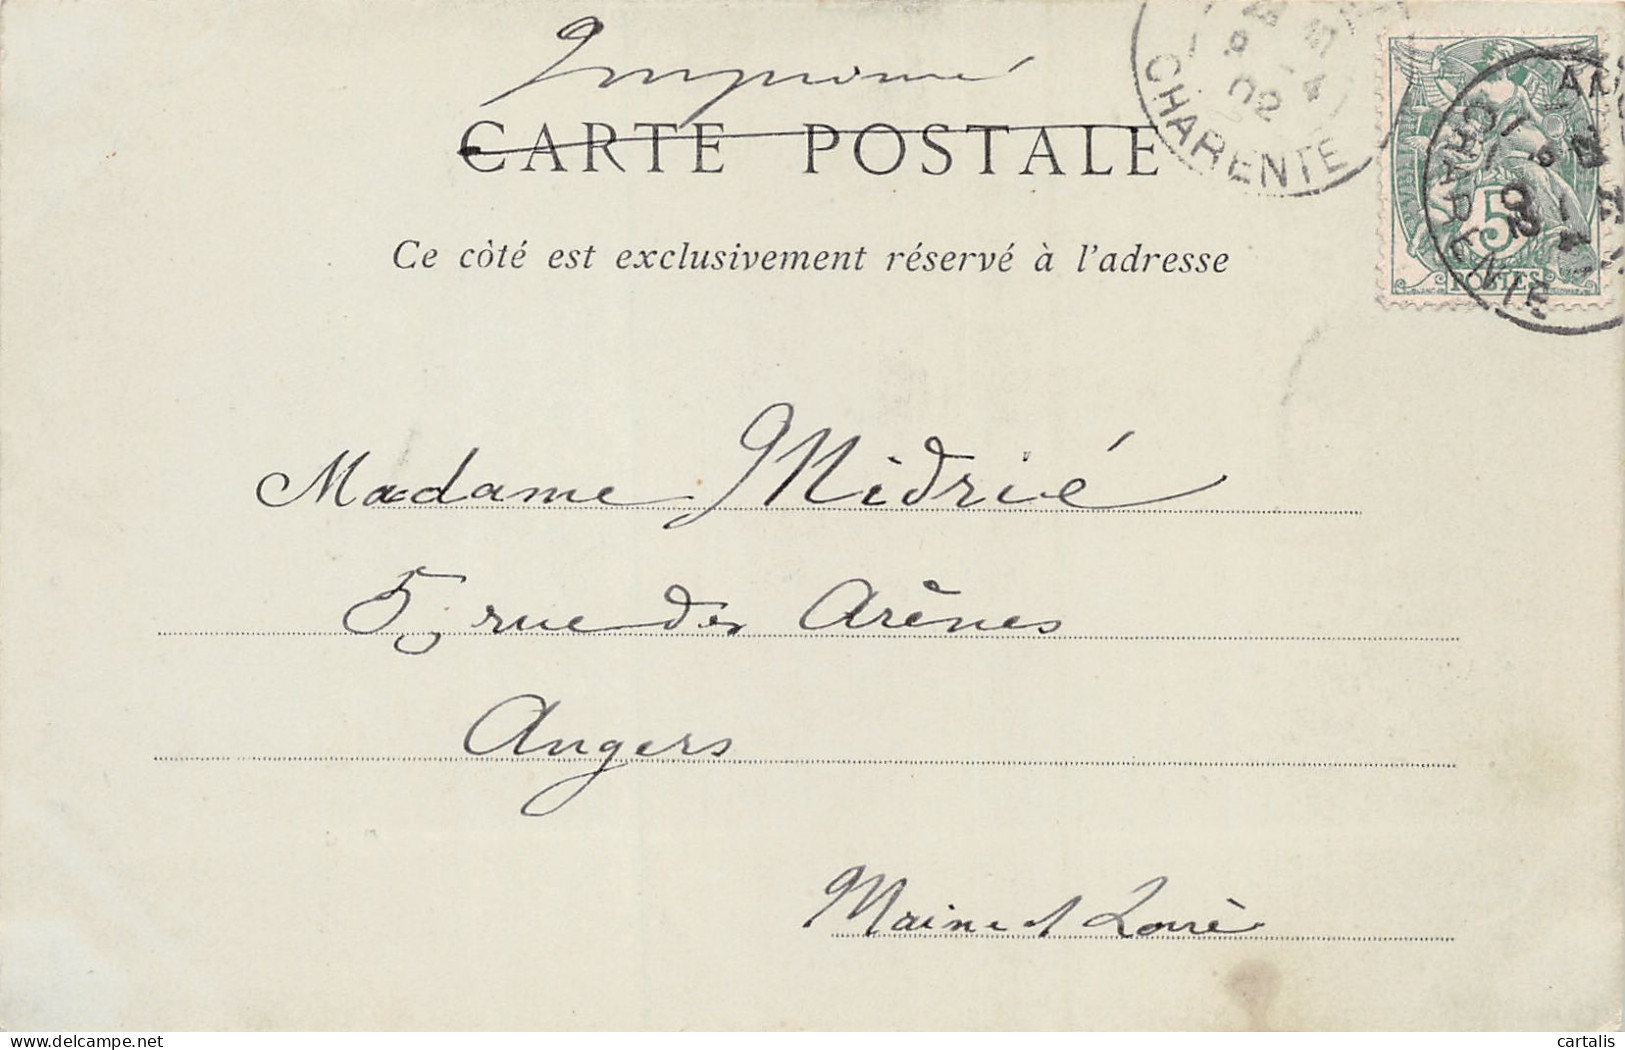 Imprimé
CARTE POSTALE
Ce côté est exclusivement réservé à l'adresse
CHARENTE
02
5
POSTES
CHARENTE
02
Madame Midrié
5, rue des Arènes
Angers
Maine et Loire
delcampe.net
cartalis